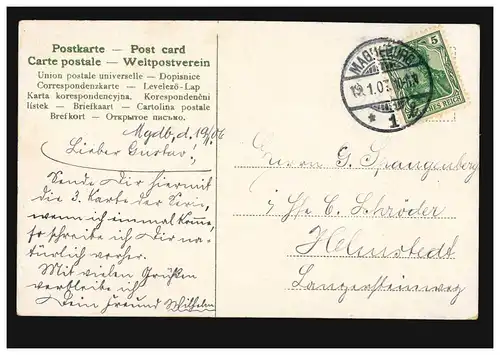 Postkarte — Post card
Carte postale — Weltpostverein
Union postale universelle — Dopisnice
Correspondenzkarte — Levelező-Lap
Karta korespondencyjna. Korespondenční
lístek — Briefkaart — Cartolina postale
Brefkort — Открытое письмо.
Mgdb, d. 19/1.06
Lieber Gustav!
Sende Dir hiermit
die 3. Karte der Serie,
wenn ich einmal komme,
so schreibe ich Dir na-
türlich vorher.
Mit vielen Grüßen
verbleibe ich
Dein Freund Wilhelm
MAGDEBURG
19.1.07
* 1
5
DEUTSCHES REICH
Herrn G. Spangenberg
C. Schröder
Helmstedt
Langersteinweg